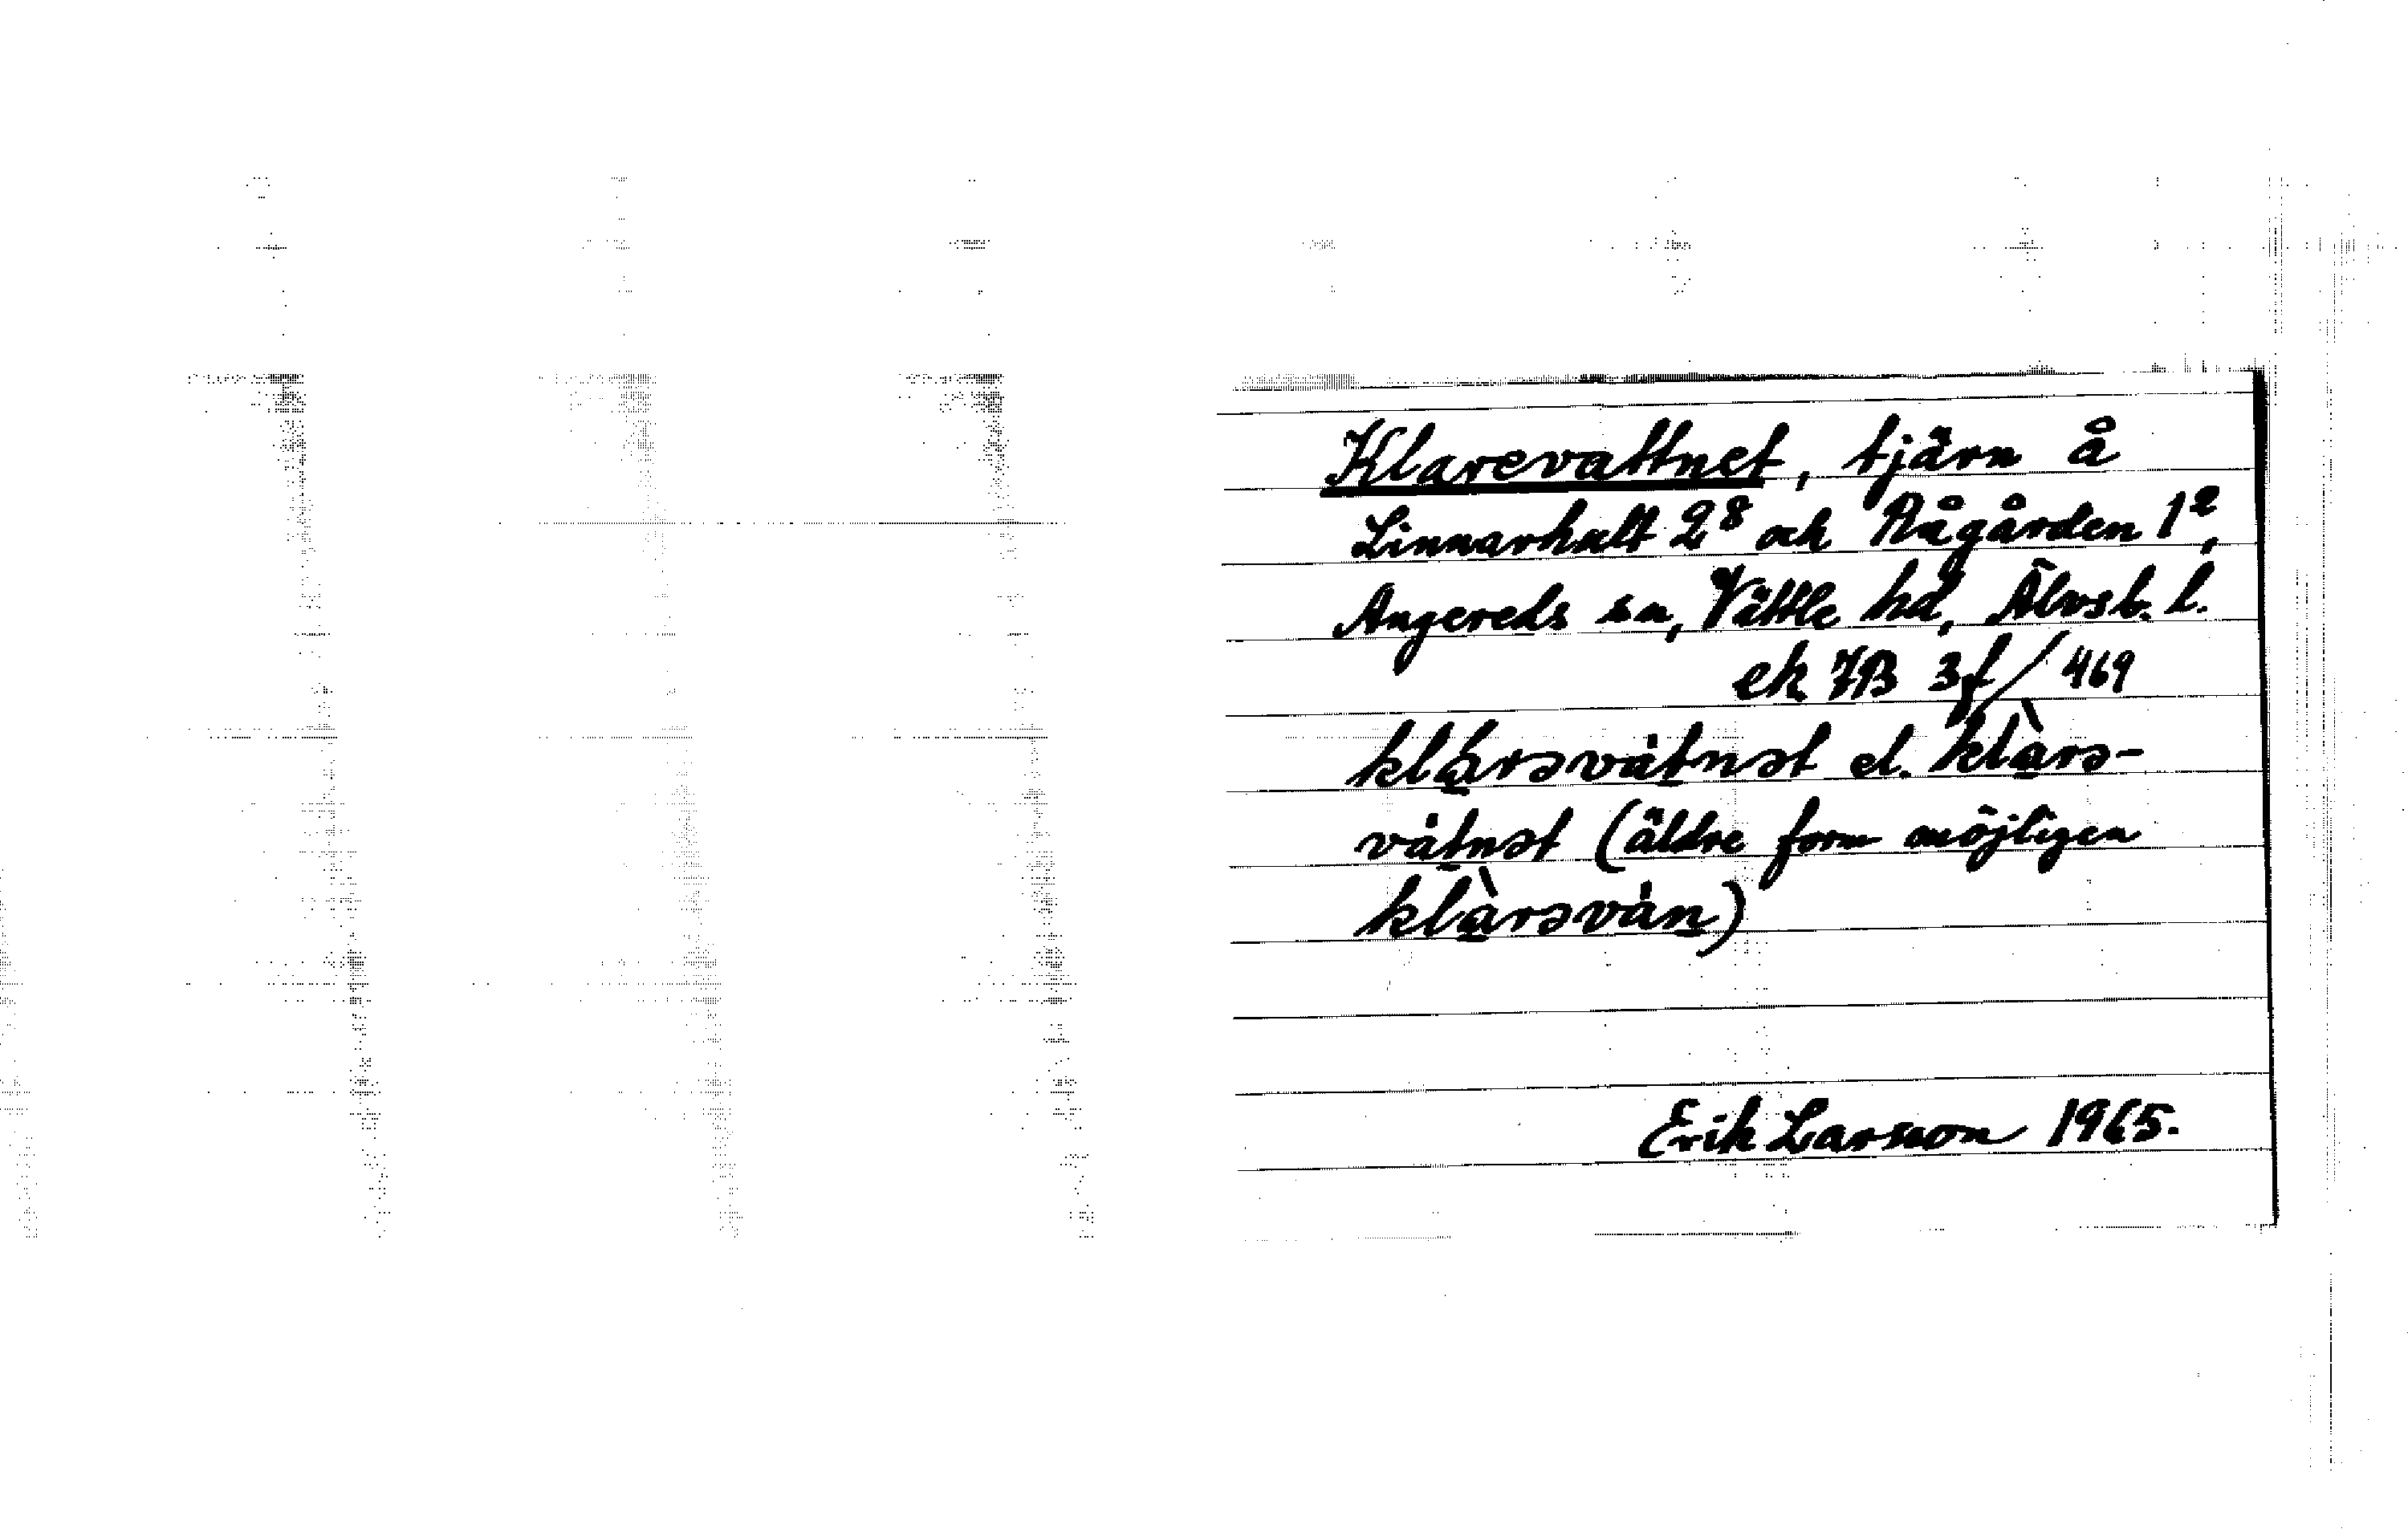 Klarevattnet, tjärn å
Linnarhult 2⁸ och Rågården 1²,
Angereds sn, Vättle hd, Älvsb. l.
ek 7B 3f/469
klárəvàtnət el. klàrə-
vàtnət (äldre form möjligen
klàrəvàn)
Erik Larsson 1965.